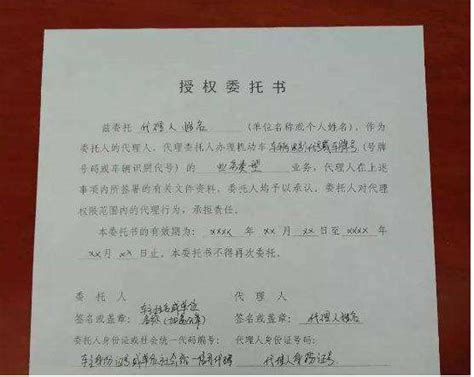 授权委托书
兹委托 代理人姓名 (单位名称或个人姓名)，作为
委托人的代理人，代理委托人办理机动车 车辆识别代号或车牌号 (号牌
号码或车辆识别代号) 的 业务类型 业务，代理人在上述
事项内所签署的有关文件资料，委托人均予以承认，委托人对代理
权限范围内的代理行为，承担责任。
本委托书的有效期为：xxxx 年 xx 月 xx 日至 xxxx 年
xx 月 xx 日止。本委托书不得再次委托。
委托人 代理人
车主姓名或单位
签名或盖章：名称(加盖公章) 签名或盖章：代理人姓名
委托人身份证或社会统一代码编号： 代理人身份证号码：
车主身份证号或单位社会统一信用代码 代理人身份证号